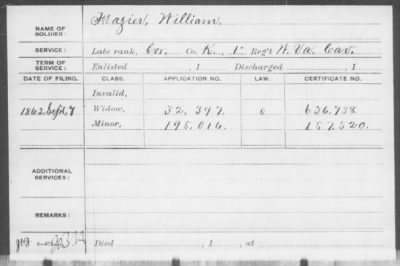 NAME OF SOLDIER: Frazier, William.
SERVICE: Late rank, Cor. Co. K, 1st Reg't W. Va. Cav.
TERM OF SERVICE: Enlisted , 1 Discharged , 1
DATE OF FILING. CLASS. APPLICATION NO. LAW. CERTIFICATE NO.
Invalid,
1863. Sept. 7 Widow, 32,397 0 636,738
Minor, 195,016 157,520
ADDITIONAL SERVICES:
REMARKS:
Died , 1 , at